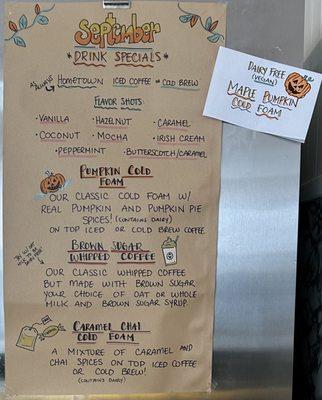 September
"DRINK SPECIALS"
AS ALWAYS HOMETOWN ICED COFFEE OR COLD BREW
FLAVOR SHOTS
• VANILLA • HAZELNUT • CARAMEL
• COCONUT • MOCHA • IRISH CREAM
• PEPPERMINT • BUTTERSCOTCH/CARAMEL
PUMPKIN COLD
FOAM
OUR CLASSIC COLD FOAM W/
REAL PUMPKIN AND PUMPKIN PIE
SPICES! (CONTAINS DAIRY)
ON TOP ICED OR COLD BREW COFFEE.
BROWN SUGAR
WHIPPED COFFEE
OUR CLASSIC WHIPPED COFFEE
BUT MADE WITH BROWN SUGAR
YOUR CHOICE OF OAT OR WHOLE
MILK AND BROWN SUGAR SYRUP.
CARAMEL CHAI
COLD FOAM
A MIXTURE OF CARAMEL AND
CHAI SPICES ON TOP ICED COFFEE
OR COLD BREW!
(CONTAINS DAIRY)
DAIRY FREE
(VEGAN)
MAPLE PUMPKIN
COLD FOAM